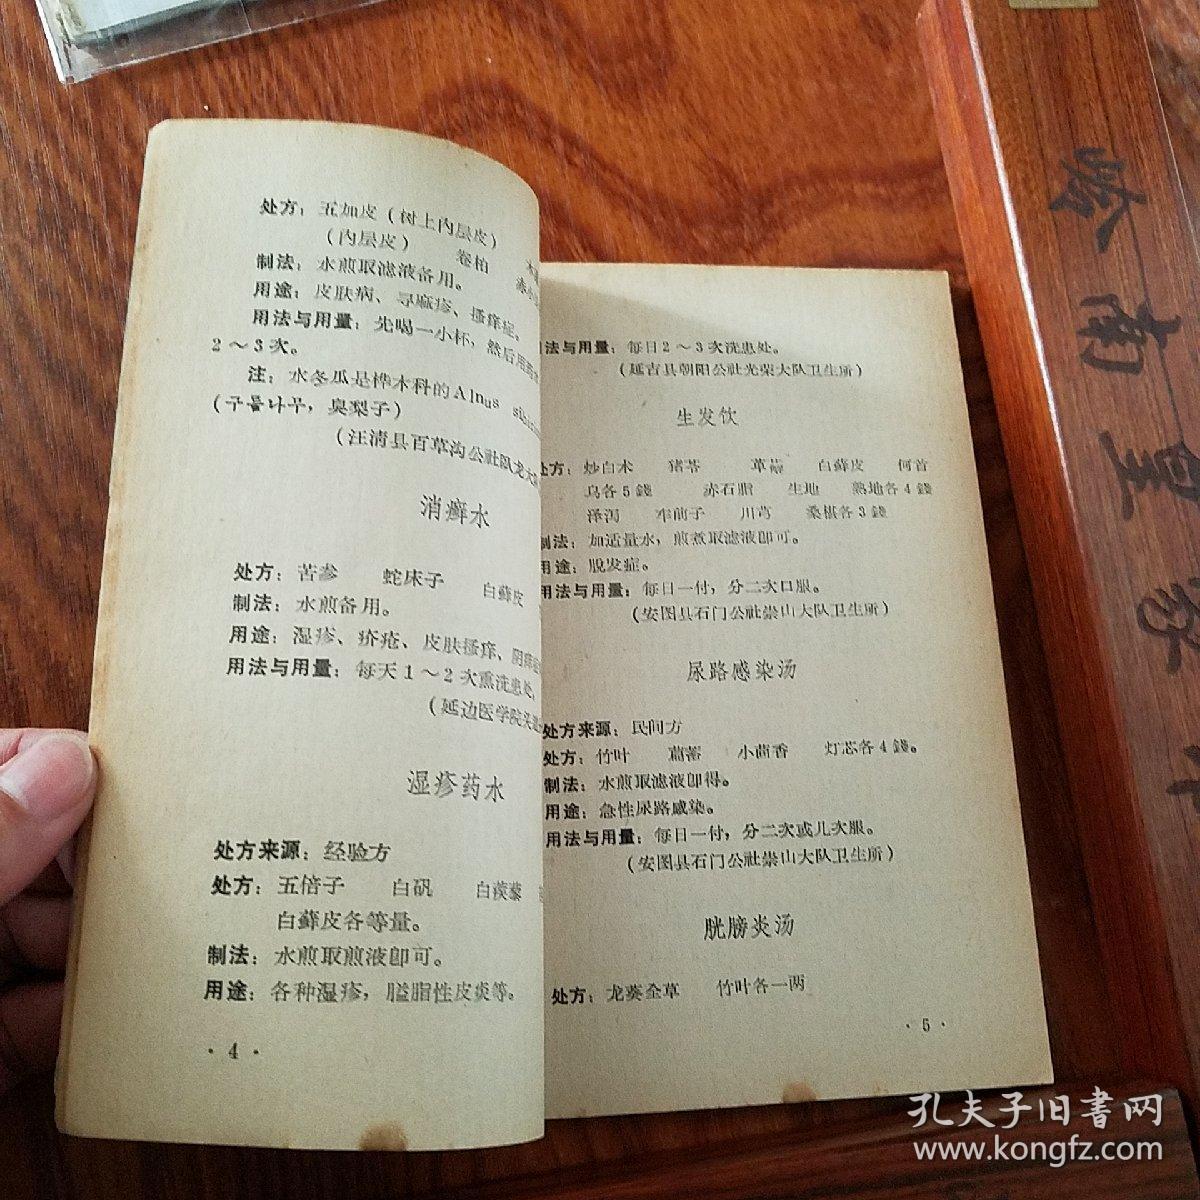 处方：五加皮（树上内层皮）
（内层皮） 卷柏
制法：水煎取滤液备用。
用途：皮肤病、寻麻疹、搔痒症。
用法与用量：先喝一小杯，然后用
2～3次。
注：水冬瓜是桦木科的Alnus
(구릅나무，臭梨子）
（汪清县百草沟公社臥龙大
消癣水
处方：苦参 蛇床子 白蘚皮
制法：水煎备用。
用途：湿疹、疥疮、皮肤搔痒、阴
用法与用量：每天1～2次熏洗患处。
（延边医学院
湿疹药水
处方来源：经验方
处方：五倍子 白矾 白蒺藜
白蘚皮各等量。
制法：水煎取煎液卽可。
用途：各种湿疹，脂性皮炎等。
·4·
法与用量：每日2～3次洗患处。
（延吉县朝阳公社光荣大队卫生所）
生发饮
处方：炒白术 猪苓 萆薢 白蘚皮 何首
乌各5錢 赤石脂 生地 熟地各4錢
泽泻 车前子 川芎 桑椹各3錢
制法：加适量水，煎煮取滤液卽可。
用途：脱发症。
用法与用量：每日一付，分二次口服。
（安图县石门公社崇山大队卫生所）
尿路感染汤
处方来源：民间方
处方：竹叶 萹蓄 小茴香 灯芯各4錢。
制法：水煎取滤液卽得。
用途：急性尿路感染。
用法与用量：每日一付，分二次或几次服。
（安图县石门公社崇山大队卫生所）
胱膀炎汤
处方：龙葵全草 竹叶各一两
·5·
孔夫子旧书网
www.kongfz.com